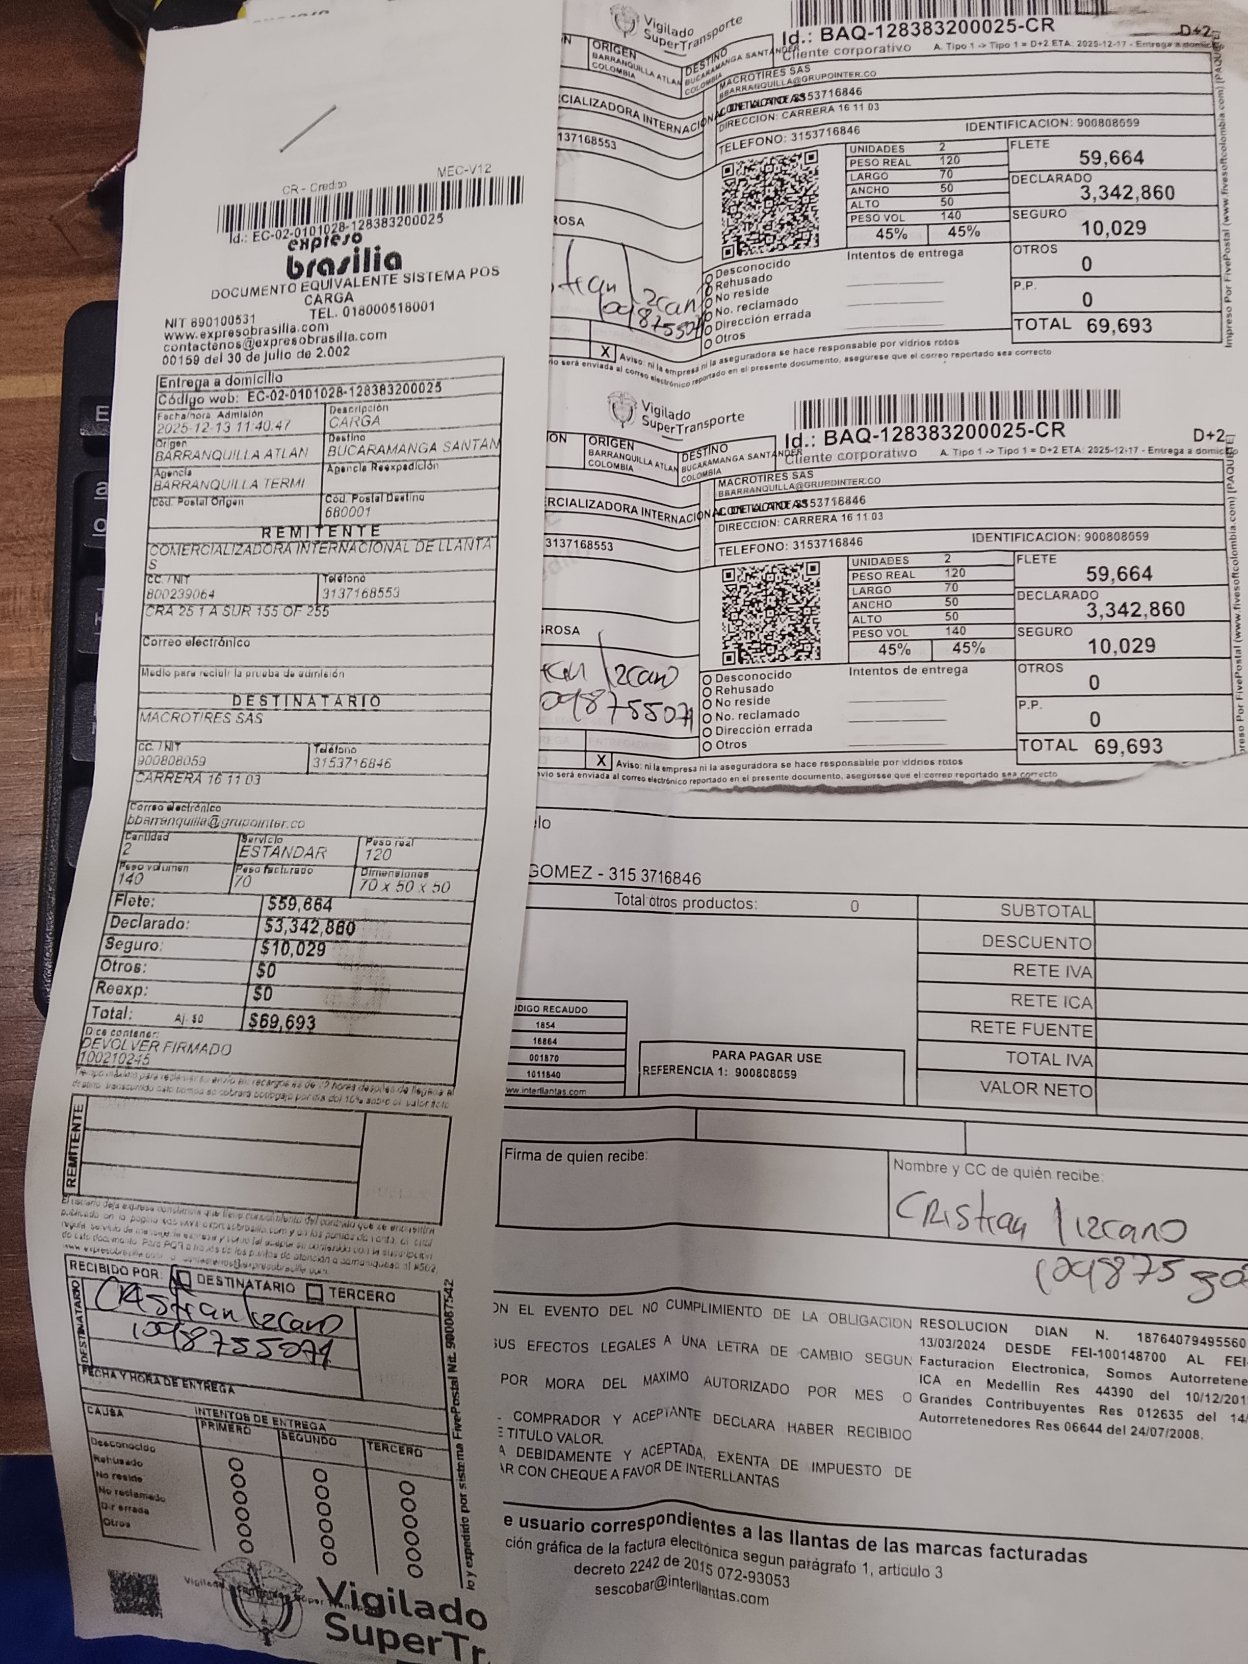 CR - Credito
MEC-V12
Id.: EC-02-0101028-128383200025
expreso
brasilia
DOCUMENTO EQUIVALENTE SISTEMA POS
CARGA
NIT 890100531
TEL. 018000518001
www.expresobrasilia.com
contactenos@expresobrasilia.com
00159 del 30 de julio de 2.002
Entrega a domicilio
Código web: EC-02-0101028-128383200025
Fecha/hora Admisión
2025-12-13 11:40:47
Descripción
CARGA
Origen
BARRANQUILLA ATLAN
Destino
BUCARAMANGA SANTAN
Agencia
BARRANQUILLA TERMI
Agencia Reexpedición
Cod. Postal Origen
Cod. Postal Destino
680001
REMITENTE
COMERCIALIZADORA INTERNACIONAL DE LLANTA
S
CC. / NIT
800239064
Teléfono
3137168553
CRA 25 1 A SUR 155 OF 255
Correo electrónico
Medio para recibir la prueba de admisión
DESTINATARIO
MACROTIRES SAS
CC. / NIT
900808059
Teléfono
3153716846
CARRERA 16 11 03
Correo electrónico
bbarranquilla@grupointer.co
Cantidad
2
Servicio
ESTANDAR
Peso real
120
Peso volumen
140
Peso facturado
70
Dimensiones
70 x 50 x 50
Flete: $59,664
Declarado: $3,342,860
Seguro: $10,029
Otros: $0
Reexp: $0
Total: Aj. $0 $69,693
Dice contener:
DEVOLVER FIRMADO
100210245
REMITENTE
RECIBIDO POR: DESTINATARIO TERCERO
DESTINATARIO
CRistian Lizcano
1098755071
FECHA Y HORA DE ENTREGA
CAUSA
INTENTOS DE ENTREGA
PRIMERO SEGUNDO TERCERO
Desconocido
Rehusado
No reside
No reclamado
Dir errada
Otros
lo y expedido por sistema FivePostal Nit. 900087542
Vigilado
SuperTr
Vigilado
SuperTransporte
Id.: BAQ-128383200025-CR
D+2
ORIGEN
BARRANQUILLA ATLAN
COLOMBIA
DESTINO
BUCARAMANGA SANTANDER
COLOMBIA
Cliente corporativo
A. Tipo 1 -> Tipo 1 = D+2 ETA: 2025-12-17 - Entrega a domicilio
MACROTIRES SAS
BBARRANQUILLA@GRUPOINTER.CO
CIALIZADORA INTERNACIONAL DE LLANTAS
3153716846
DIRECCION: CARRERA 16 11 03
137168553
TELEFONO: 3153716846
IDENTIFICACION: 900808059
UNIDADES 2
PESO REAL 120
LARGO 70
ANCHO 50
ALTO 50
PESO VOL 140
45% 45%
FLETE
59,664
DECLARADO
3,342,860
SEGURO
10,029
OTROS
0
P.P.
0
TOTAL 69,693
ROSA
stian Lizcano
1098755071
Desconocido
Rehusado
No reside
No. reclamado
Dirección errada
Otros
Intentos de entrega
X
Aviso: ni la empresa ni la aseguradora se hace responsable por vidrios rotos
io será enviada al correo electrónico reportado en el presente documento, asegurese que el correo reportado sea correcto
Impreso Por FivePostal (www.fivesoftcolombia.com) [PAQUETE]
Vigilado
SuperTransporte
Id.: BAQ-128383200025-CR
D+2
ION
ORIGEN
BARRANQUILLA ATLAN
COLOMBIA
DESTINO
BUCARAMANGA SANTANDER
COLOMBIA
Cliente corporativo
A. Tipo 1 -> Tipo 1 = D+2 ETA: 2025-12-17 - Entrega a domicilio
MACROTIRES SAS
BBARRANQUILLA@GRUPOINTER.CO
ERCIALIZADORA INTERNACIONAL DE LLANTAS
3153716846
DIRECCION: CARRERA 16 11 03
3137168553
TELEFONO: 3153716846
IDENTIFICACION: 900808059
UNIDADES 2
PESO REAL 120
LARGO 70
ANCHO 50
ALTO 50
PESO VOL 140
45% 45%
FLETE
59,664
DECLARADO
3,342,860
SEGURO
10,029
OTROS
0
P.P.
0
TOTAL 69,693
GROSA
tian Lizcano
1098755071
Desconocido
Rehusado
No reside
No. reclamado
Dirección errada
Otros
Intentos de entrega
X
Aviso: ni la empresa ni la aseguradora se hace responsable por vidrios rotos
nvio será enviada al correo electrónico reportado en el presente documento, asegurese que el correo reportado sea correcto
preso Por FivePostal (www.fivesoftcolombia.com) [PAQUETE]
elo
GOMEZ - 315 3716846
Total otros productos: 0
SUBTOTAL
DESCUENTO
RETE IVA
RETE ICA
RETE FUENTE
TOTAL IVA
VALOR NETO
ODIGO RECAUDO
1854
16864
001870
1011840
www.interllantas.com
PARA PAGAR USE
REFERENCIA 1: 900808059
Firma de quien recibe:
Nombre y CC de quién recibe:
CRistian Lizcano
ON EL EVENTO DEL NO CUMPLIMIENTO DE LA OBLIGACION
SUS EFECTOS LEGALES A UNA LETRA DE CAMBIO SEGUN
POR MORA DEL MAXIMO AUTORIZADO POR MES O
COMPRADOR Y ACEPTANTE DECLARA HABER RECIBIDO
E TITULO VALOR.
A DEBIDAMENTE Y ACEPTADA, EXENTA DE IMPUESTO DE
AR CON CHEQUE A FAVOR DE INTERLLANTAS
RESOLUCION DIAN N. 18764079495560
13/03/2024 DESDE FEI-100148700 AL FEI-
Facturacion Electronica, Somos Autorretene
ICA en Medellin Res 44390 del 10/12/201
Grandes Contribuyentes Res 012635 del 14/
Autorretenedores Res 06644 del 24/07/2008.
e usuario correspondientes a las llantas de las marcas facturadas
ción gráfica de la factura electrónica segun parágrafo 1, articulo 3
decreto 2242 de 2015 072-93053
sescobar@interllantas.com